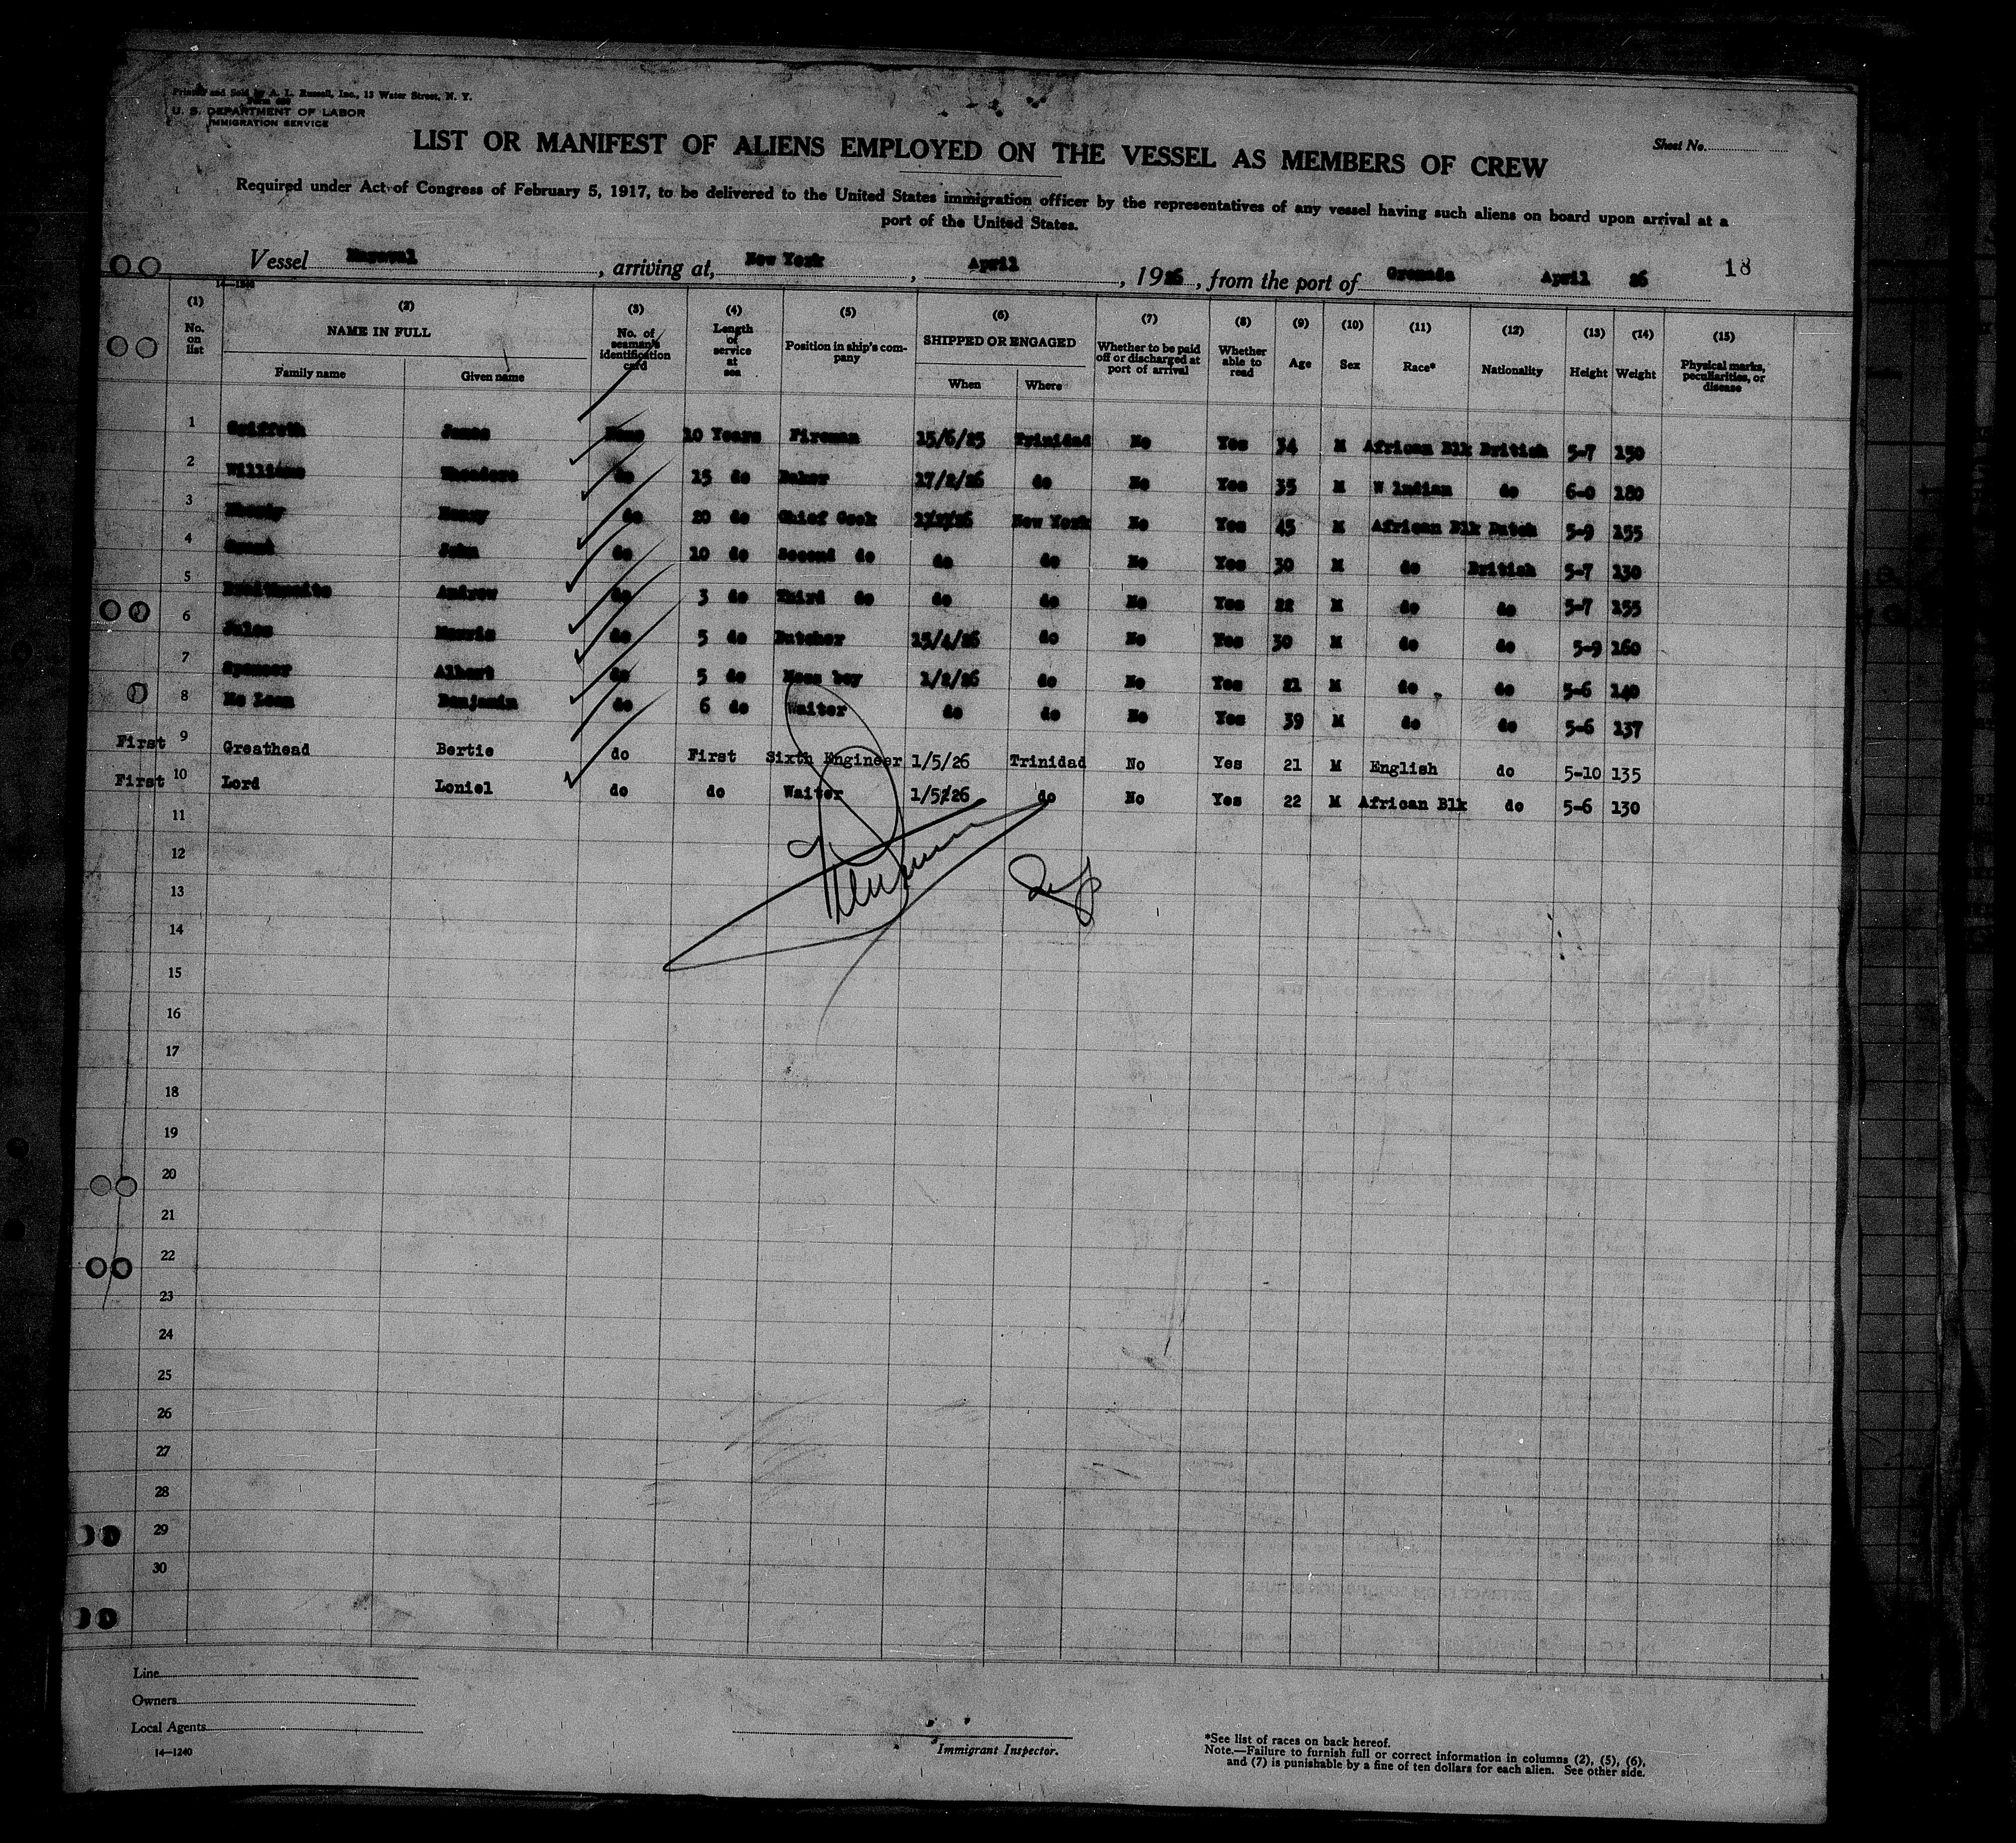 Printed and Sold by A. L. Russell, Inc., 13 Water Street, N. Y.
U. S. DEPARTMENT OF LABOR
IMMIGRATION SERVICE
Sheet No.
LIST OR MANIFEST OF ALIENS EMPLOYED ON THE VESSEL AS MEMBERS OF CREW
Required under Act of Congress of February 5, 1917, to be delivered to the United States immigration officer by the representatives of any vessel having such aliens on board upon arrival at a
port of the United States.
Vessel , arriving at, New York , April , 1926, from the port of Grenada April 26 18
14—1240
(1) No. on list
(2) NAME IN FULL Family name Given name
(3) No. of seaman's identification card
(4) Length of service at sea
(5) Position in ship's company
(6) SHIPPED OR ENGAGED When Where
(7) Whether to be paid off or discharged at port of arrival
(8) Whether able to read
(9) Age
(10) Sex
(11) Race*
(12) Nationality
(13) Height
(14) Weight
(15) Physical marks, peculiarities, or disease
1 Griffith James None 10 Years Fireman 15/6/25 Trinidad No Yes 34 M African Blk British 5-7 150
2 Williams Theodore do 15 do Baker 17/2/26 do No Yes 35 M W Indian do 6-0 180
3 Henry do 20 do Chief Cook New York No Yes 45 M African Blk Dutch 5-9 155
4 John do 10 do Second do do do No Yes 30 M do British 5-7 130
5 Andrew do 3 do Third do do do No Yes 22 M do do 5-7 155
6 Jules Morris do 5 do Butcher 15/4/26 do No Yes 30 M do do 5-9 160
7 Spencer Albert do 5 do Mess boy 1/2/26 do No Yes 21 M do do 5-6 140
8 Mc Lean Benjamin do 6 do Waiter do do No Yes 39 M do do 5-6 137
First 9 Greathead Bertie do First Sixth Engineer 1/5/26 Trinidad No Yes 21 M English do 5-10 135
First 10 Lord Loniel do do Waiter 1/5/26 do No Yes 22 M African Blk do 5-6 130
11
12
13
14
15
16
17
18
19
20
21
22
23
24
25
26
27
28
29
30
Line
Owners
Local Agents
14—1240
Immigrant Inspector.
*See list of races on back hereof.
Note.—Failure to furnish full or correct information in columns (2), (5), (6),
and (7) is punishable by a fine of ten dollars for each alien. See other side.